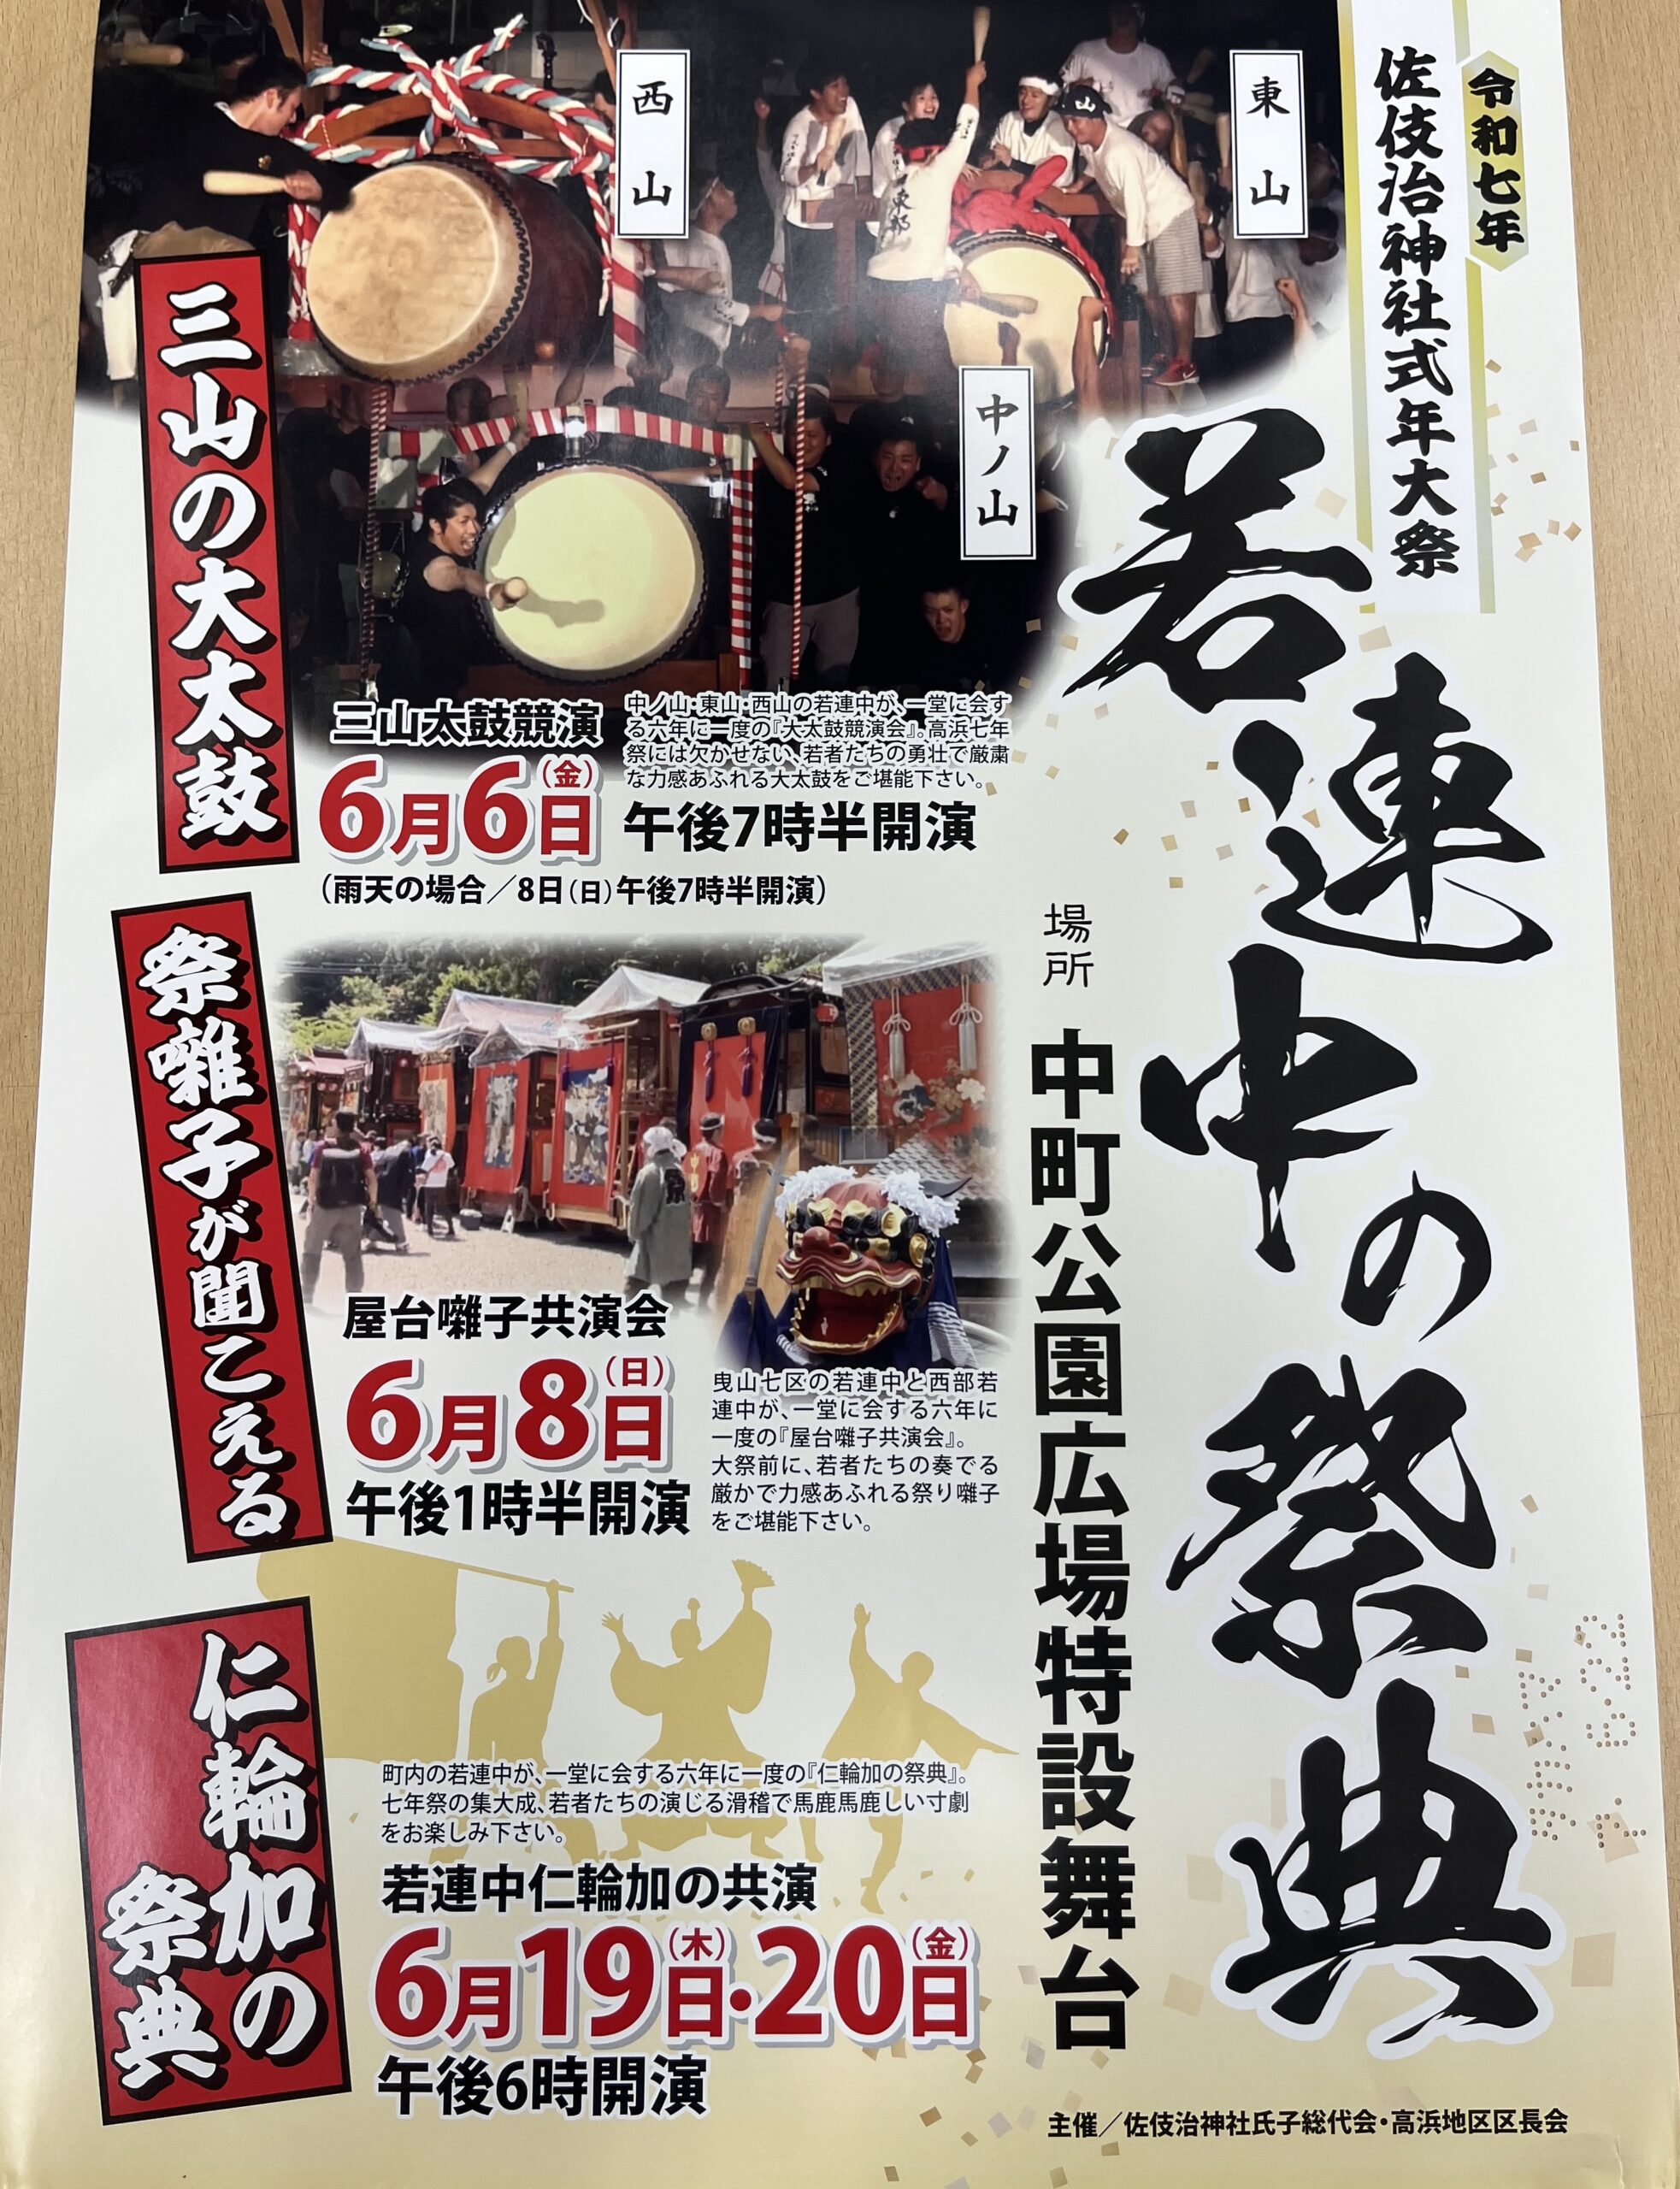 令和七年
佐伎治神社式年大祭
若連中の祭典
場所 中町公園広場特設舞台
東山
西山
中ノ山
三山の大太鼓
三山太鼓競演
6月6日(金)
午後7時半開演
(雨天の場合/8日(日)午後7時半開演)
中ノ山・東山・西山の若連中が、一堂に会す
る六年に一度の『大太鼓競演会』。高浜七年
祭には欠かせない、若者たちの勇壮で厳粛
な力感あふれる大太鼓をご堪能下さい。
祭囃子が聞こえる
屋台囃子共演会
6月8日(日)
午後1時半開演
曳山七区の若連中と西部若
連中が、一堂に会する六年に
一度の『屋台囃子共演会』。
大祭前に、若者たちの奏でる
厳かで力感あふれる祭り囃子
をご堪能下さい。
仁輪加の
祭典
町内の若連中が、一堂に会する六年に一度の『仁輪加の祭典』。
七年祭の集大成、若者たちの演じる滑稽で馬鹿馬鹿しい寸劇
をお楽しみ下さい。
若連中仁輪加の共演
6月19日(木)・20日(金)
午後6時開演
主催/佐伎治神社氏子総代会・高浜地区区長会